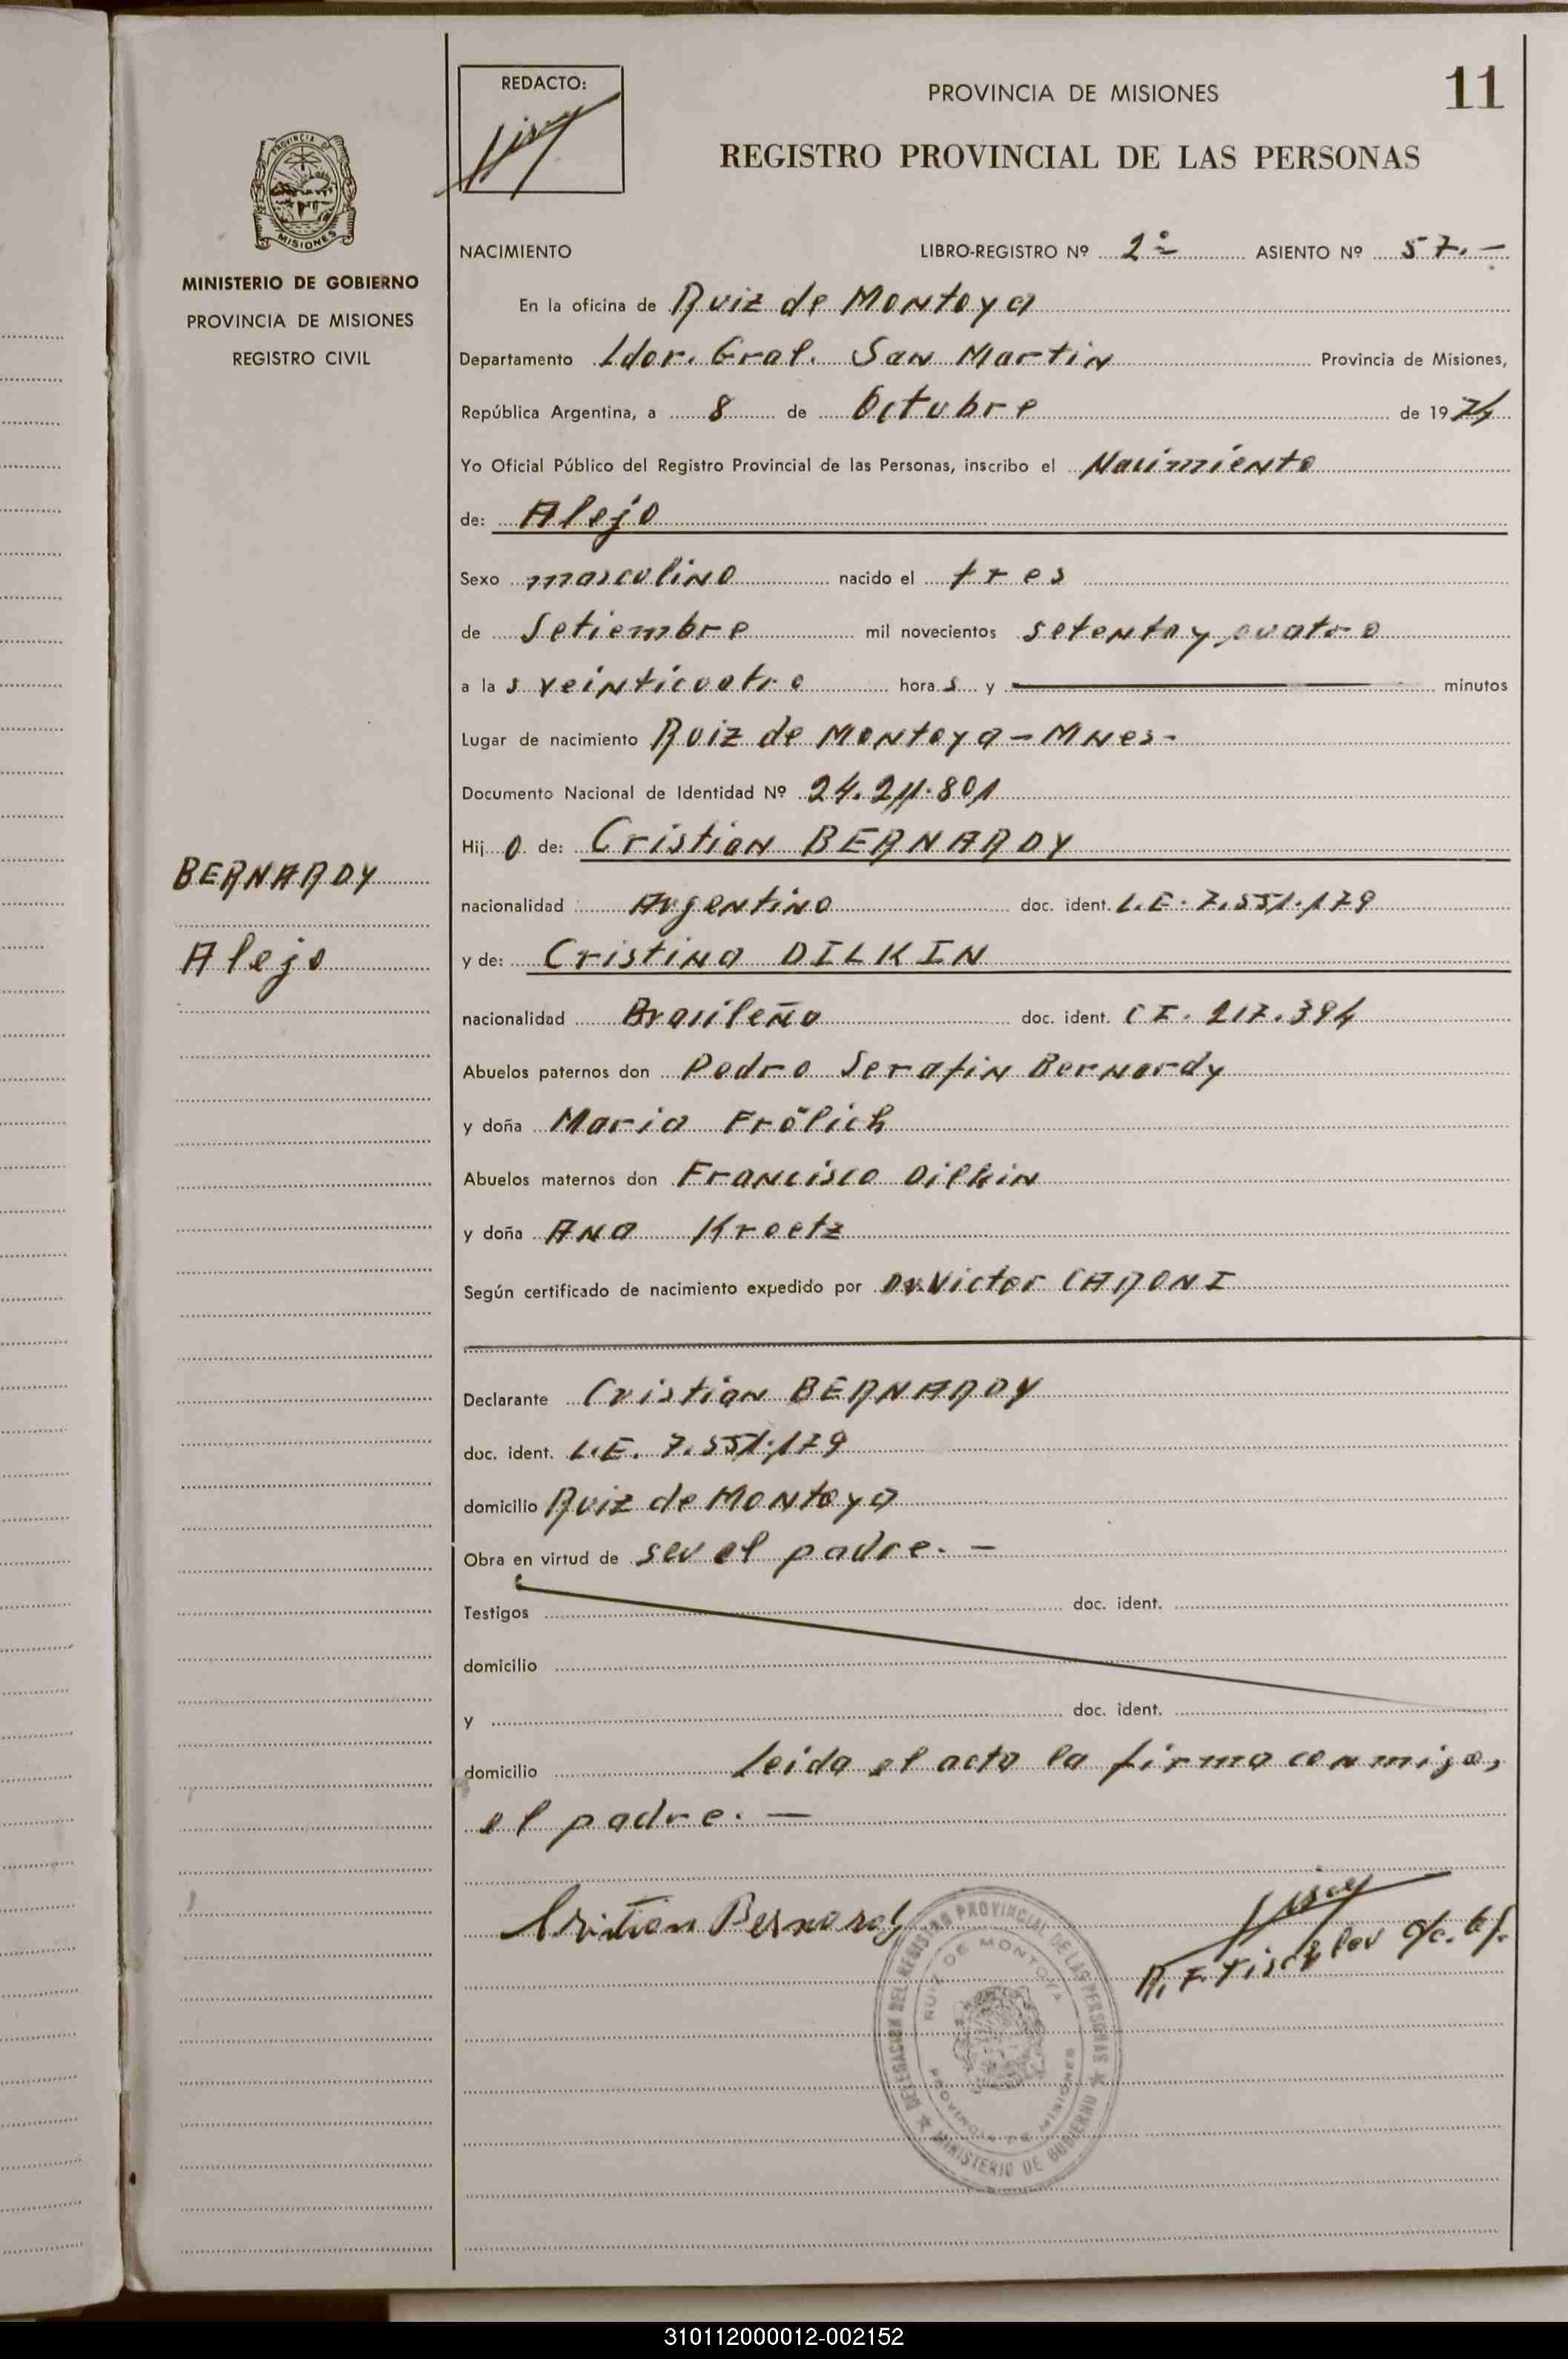 REDACTO:
PROVINCIA DE MISIONES
11
REGISTRO PROVINCIAL DE LAS PERSONAS
PROVINCIA DE
MISIONES
MINISTERIO DE GOBIERNO
PROVINCIA DE MISIONES
REGISTRO CIVIL
NACIMIENTO LIBRO-REGISTRO Nº 2º ASIENTO Nº 57.-
En la oficina de Ruiz de Montoya
Departamento Ldor. Gral. San Martin Provincia de Misiones,
República Argentina, a 8 de Octubre de 1974
Yo Oficial Público del Registro Provincial de las Personas, inscribo el Nacimiento
de: Alejo
Sexo masculino nacido el tres
de Setiembre mil novecientos setenta y cuatro
a las veinticuatro horas y minutos
Lugar de nacimiento Ruiz de Montoya - Mnes-
Documento Nacional de Identidad Nº 24.211.801
Hijo de: Cristian BERNARDY
BERNARDY
nacionalidad Argentino doc. ident. L.E. 7.551.179
Alejo
y de: Cristina DILKIN
nacionalidad Brasileña doc. ident. CI. 217.394
Abuelos paternos don Pedro Serafin Bernardy
y doña Maria Frölich
Abuelos maternos don Francisco Dilkin
y doña Ana Kroetz
Según certificado de nacimiento expedido por Dr. Victor CARONI
Declarante Cristian BERNARDY
doc. ident. L.E. 7.551.179
domicilio Ruiz de Montoya
Obra en virtud de ser el padre. -
Testigos doc. ident.
domicilio
y doc. ident.
domicilio leida el acta la firma conmigo,
el padre. -
Cristian Bernardy
DELEGACION DEL REGISTRO PROVINCIAL DE LAS PERSONAS
RUIZ DE MONTOYA
PROVINCIA DE MISIONES
MINISTERIO DE GOBIERNO
310112000012-002152